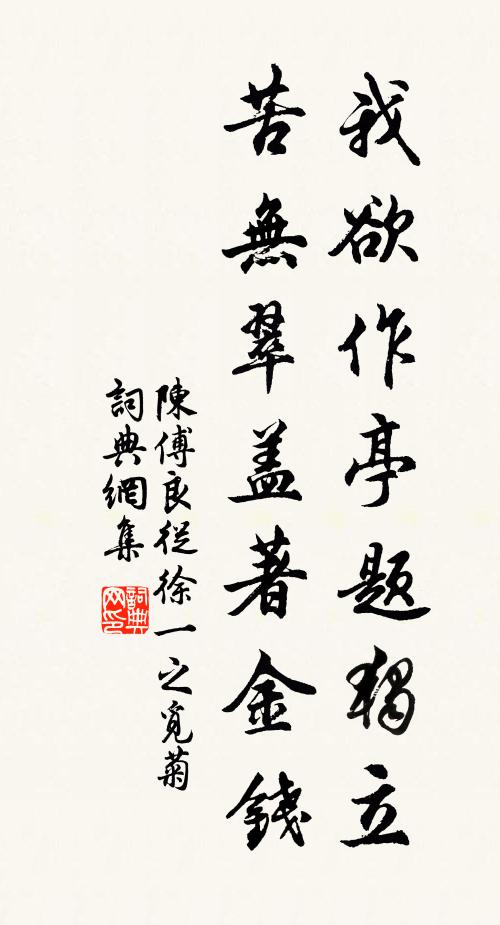 我欲作亭题獨立
苦無翠盖著金錢
陳傅良從徐一之覓菊
詞典網集
詞典网印